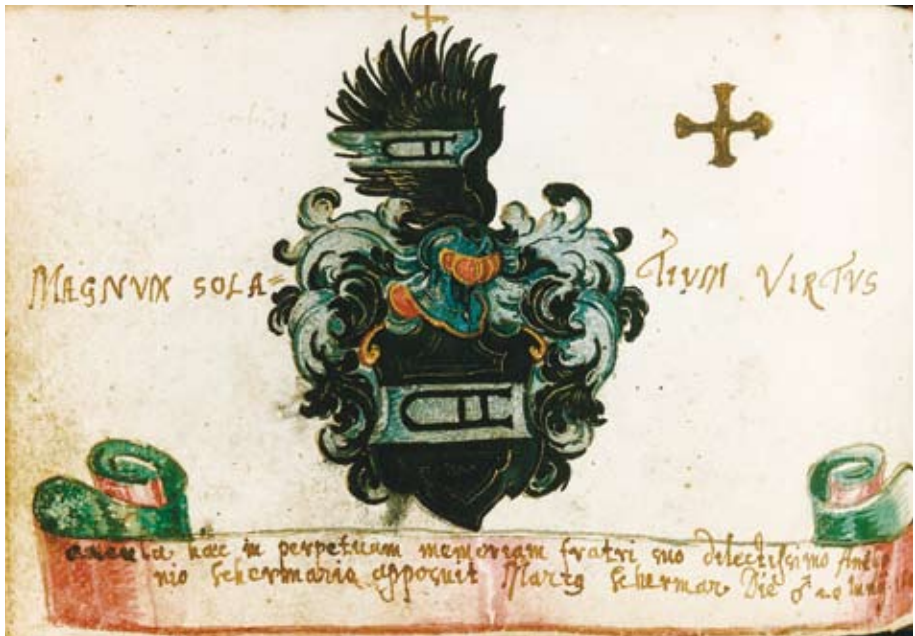 MAGNVM SOLA= TIVM VIRTVS
hæc in perpetuam memoriam fratri suo dilectissimo Anto
nio Schermario apposuit Schermar Die ♂